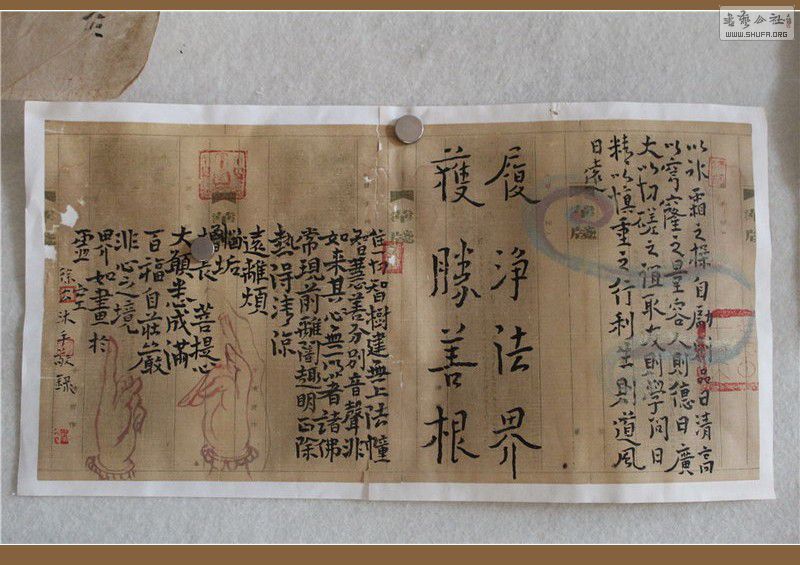 書藝公社
WWW.SHUFA.ORG
以冰霜之操自勵則品日清高
以穹窿之量容人則德日廣
大以切磋之誼取友則學問日
精以慎重之行利生則道風
日遠
履淨法界
獲勝善根
智樹建無上法幢
智慧善分別音聲非
如來其心無
常現前離闇趣明正除
熱得清涼
遠離煩
惱垢
長菩提心
大願悉成滿
百福自莊嚴
非心之境
界如畫於
虛空
沐手敬錄